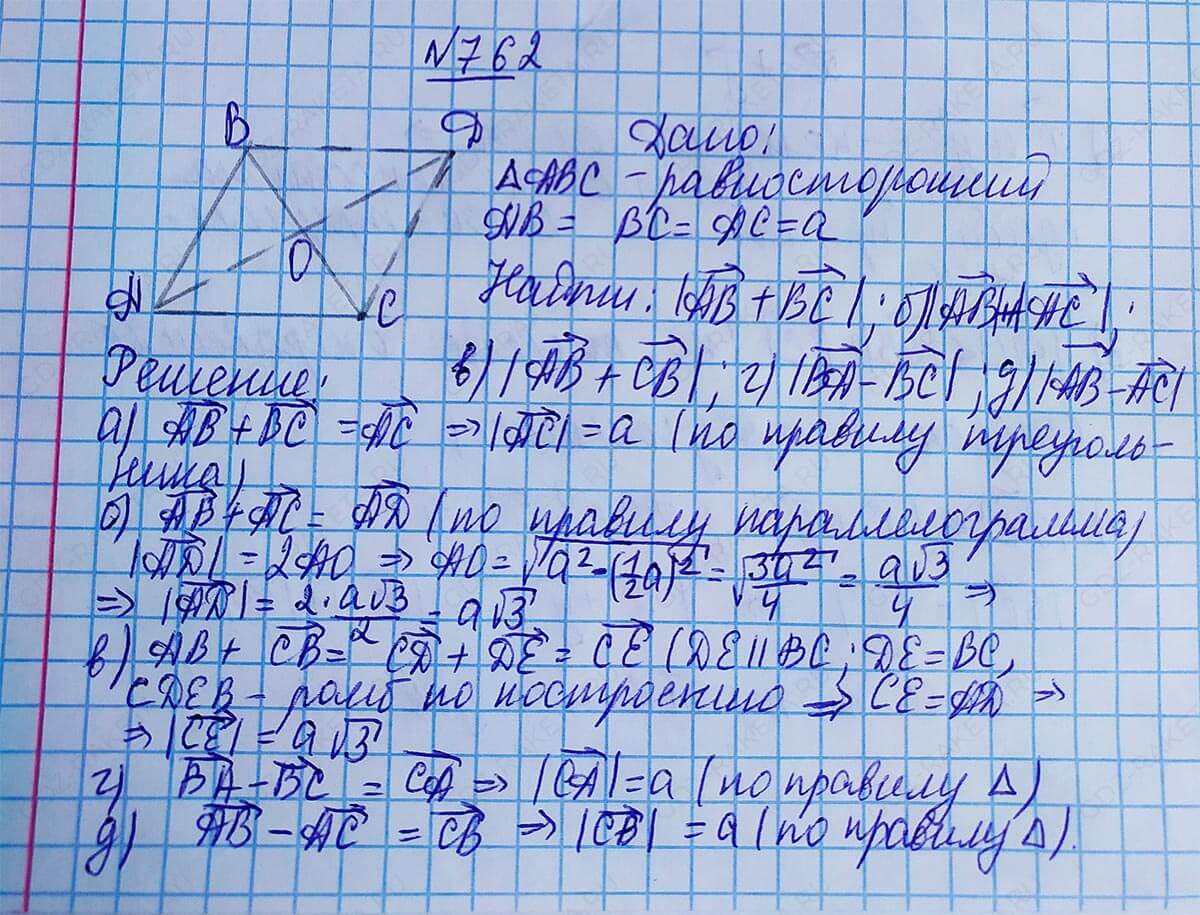 №762
B D
O
A C
Дано:
ΔABC – равносторонний
AB = BC = AC = a
Найти: |AB⃗ + BC⃗|; б) |AB⃗ + AC⃗|;
в) |AB⃗ + CB⃗|; г) |BA⃗ – BC⃗|; д) |AB⃗ – AC⃗|
Решение:
а) AB⃗ + BC⃗ = AC⃗ ⇒ |AC⃗| = a (по правилу треуголь-
ника)
б) AB⃗ + AC⃗ = AD⃗ (по правилу параллелограмма)
|AD⃗| = 2AO ⇒ AO = √(a² – (½a)²) = √(3a²/4) = a√3/4 ⇒
⇒ |AD⃗| = 2·a√3/2 = a√3
в) AB + CB⃗ = CD⃗ + DE⃗ = CE⃗ (DE || BC; DE = BC,
CDEB – ромб по построению ⇒ CE = AD ⇒
⇒ |CE⃗| = a√3
г) BA⃗ – BC⃗ = CA⃗ ⇒ |CA⃗| = a (по правилу Δ)
д) AB⃗ – AC⃗ = CB⃗ ⇒ |CB⃗| = a (по правилу Δ).